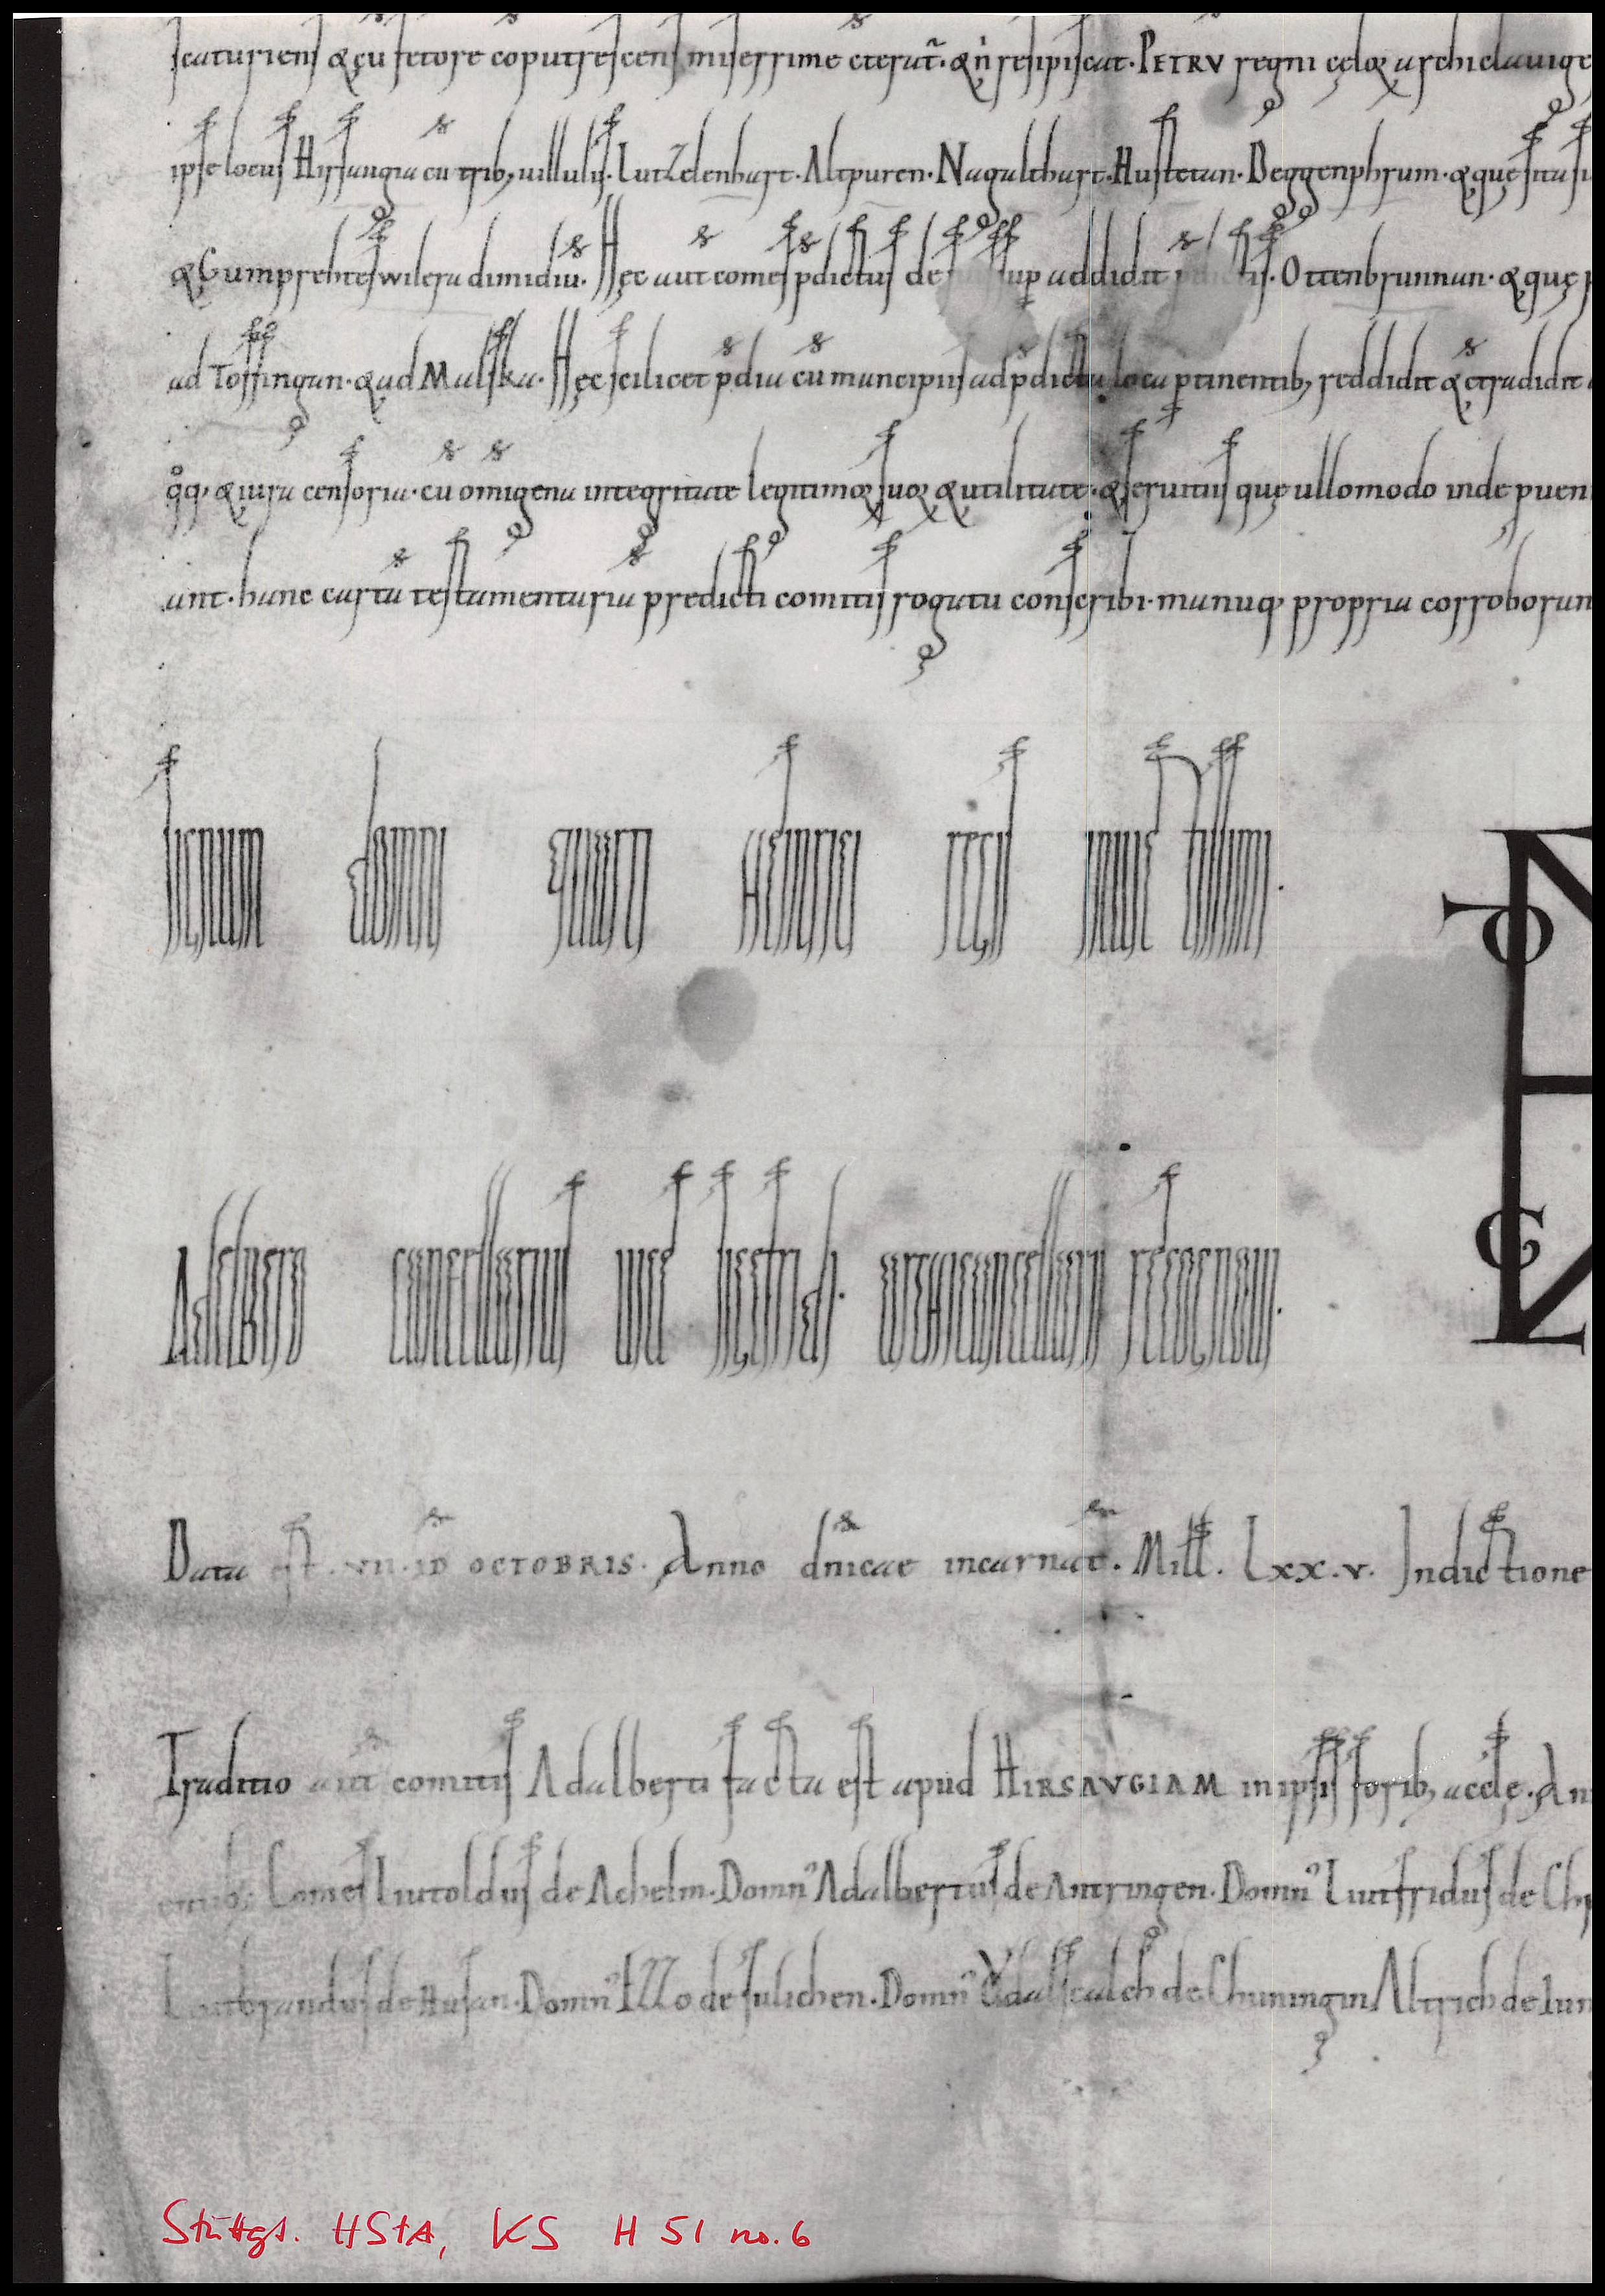 scaturiens & cũ fetore cõputrescens miserrime ęterat̃. & n̓ resipiscat. PETRV regni cęloꝝ archiclauige
ipse locus Hirsaugia cũ trib; uillulis. Lutzelenhart. Altpuren. Nagalthart. Hustetan. Deggenphrum. & quę sita s
& Gumprehteswilera dimidiũ. Hęc aut comes p̄dictus de sup addidit Ottenbrunnan. & quę p
ad Toffingan. & ad Malska. Hęc scilicet p̄dia cũ mancipiis ad p̄dicta loca ptinentib; reddidit & ctradidit
q̊q; & iura censoria. cũ omĩgena integritate legitimoꝝ suoꝝ & utilitate. & seruitiis quę ullomodo inde puen
ant. hanc cartã testamentariã predicti comitis rogatu conscribi. manuq; propria corroboran
signum domni quarti Heinrici regis inuictissimi.
Adelbero cancellarius uice sigefridi. archicancellarii recognoui.
Data est. VII. ID OCTOBRIS. Anno dñicae incarnat̃. Mill. Lxx.v. Indictione
Traditio aut̃ comitis Adalberti facta est apud HIRSAVGIAM in ipsis forib; aecclę. An
Comes Liutoldus de Achelm. Domn᾿ Adalbertus de Antringen. Domn᾿ Liutfridus de Ch
de Husan. Domn᾿ Ezzo de Sulichen. Domn᾿ Ǒdalscalch de Chuningin Altrich de Lun
Stuttgt. HStA, KS H 51 no. 6